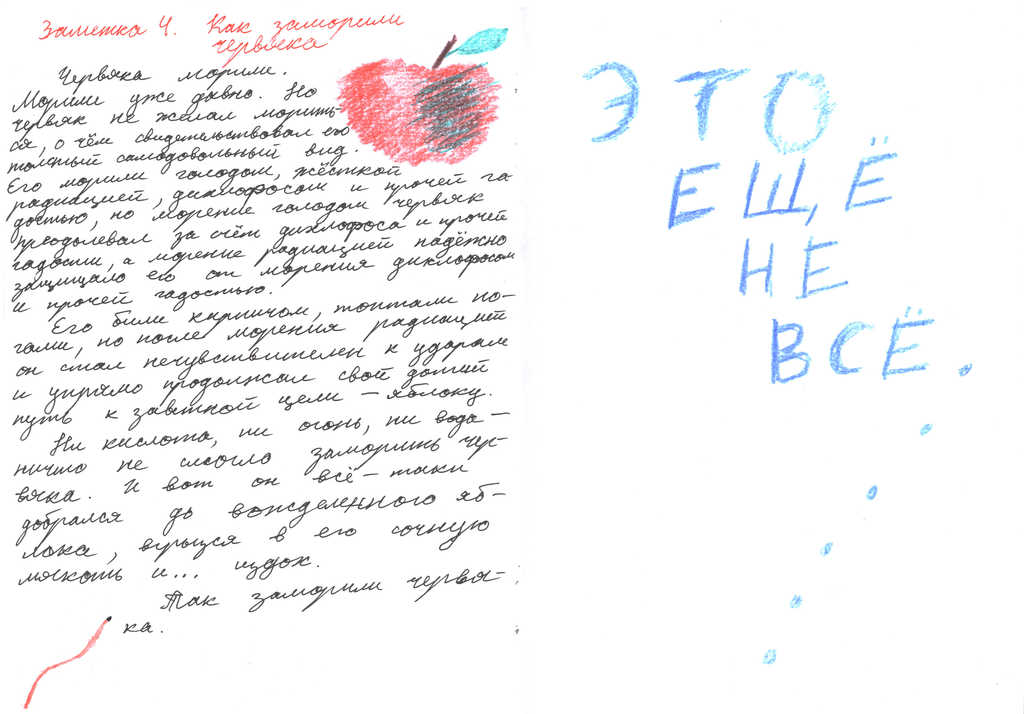 Заметка 4. Как заморили
червяка
Червяка морили.
Морили уже давно. Но
червяк не желал морить-
ся, о чём свидетельствовал его
толстый самодовольный вид.
Его морили голодом, жёсткой
радиацией, дихлофосом и прочей га
достью, но морение голодом червяк
преодолевал за счёт дихлофоса и прочей
гадости, а морение радиацией надёжно
защищало его от морения дихлофосом
и прочей гадостью.
Его били кирпичом, топтали но-
гами, но после морения радиацией
он стал нечувствителен к ударам
и упрямо продолжал свой долгий
путь к заветной цели – яблоку.
Ни кислота, ни огонь, ни вода –
ничто не смогло заморить чер-
вяка. И вот он всё-таки
добрался до вожделенного яб-
лока, вгрызся в его сочную
мякоть и... издох.
Так заморили червя-
ка.
ЭТО
ЕЩЁ
НЕ
ВСЁ.